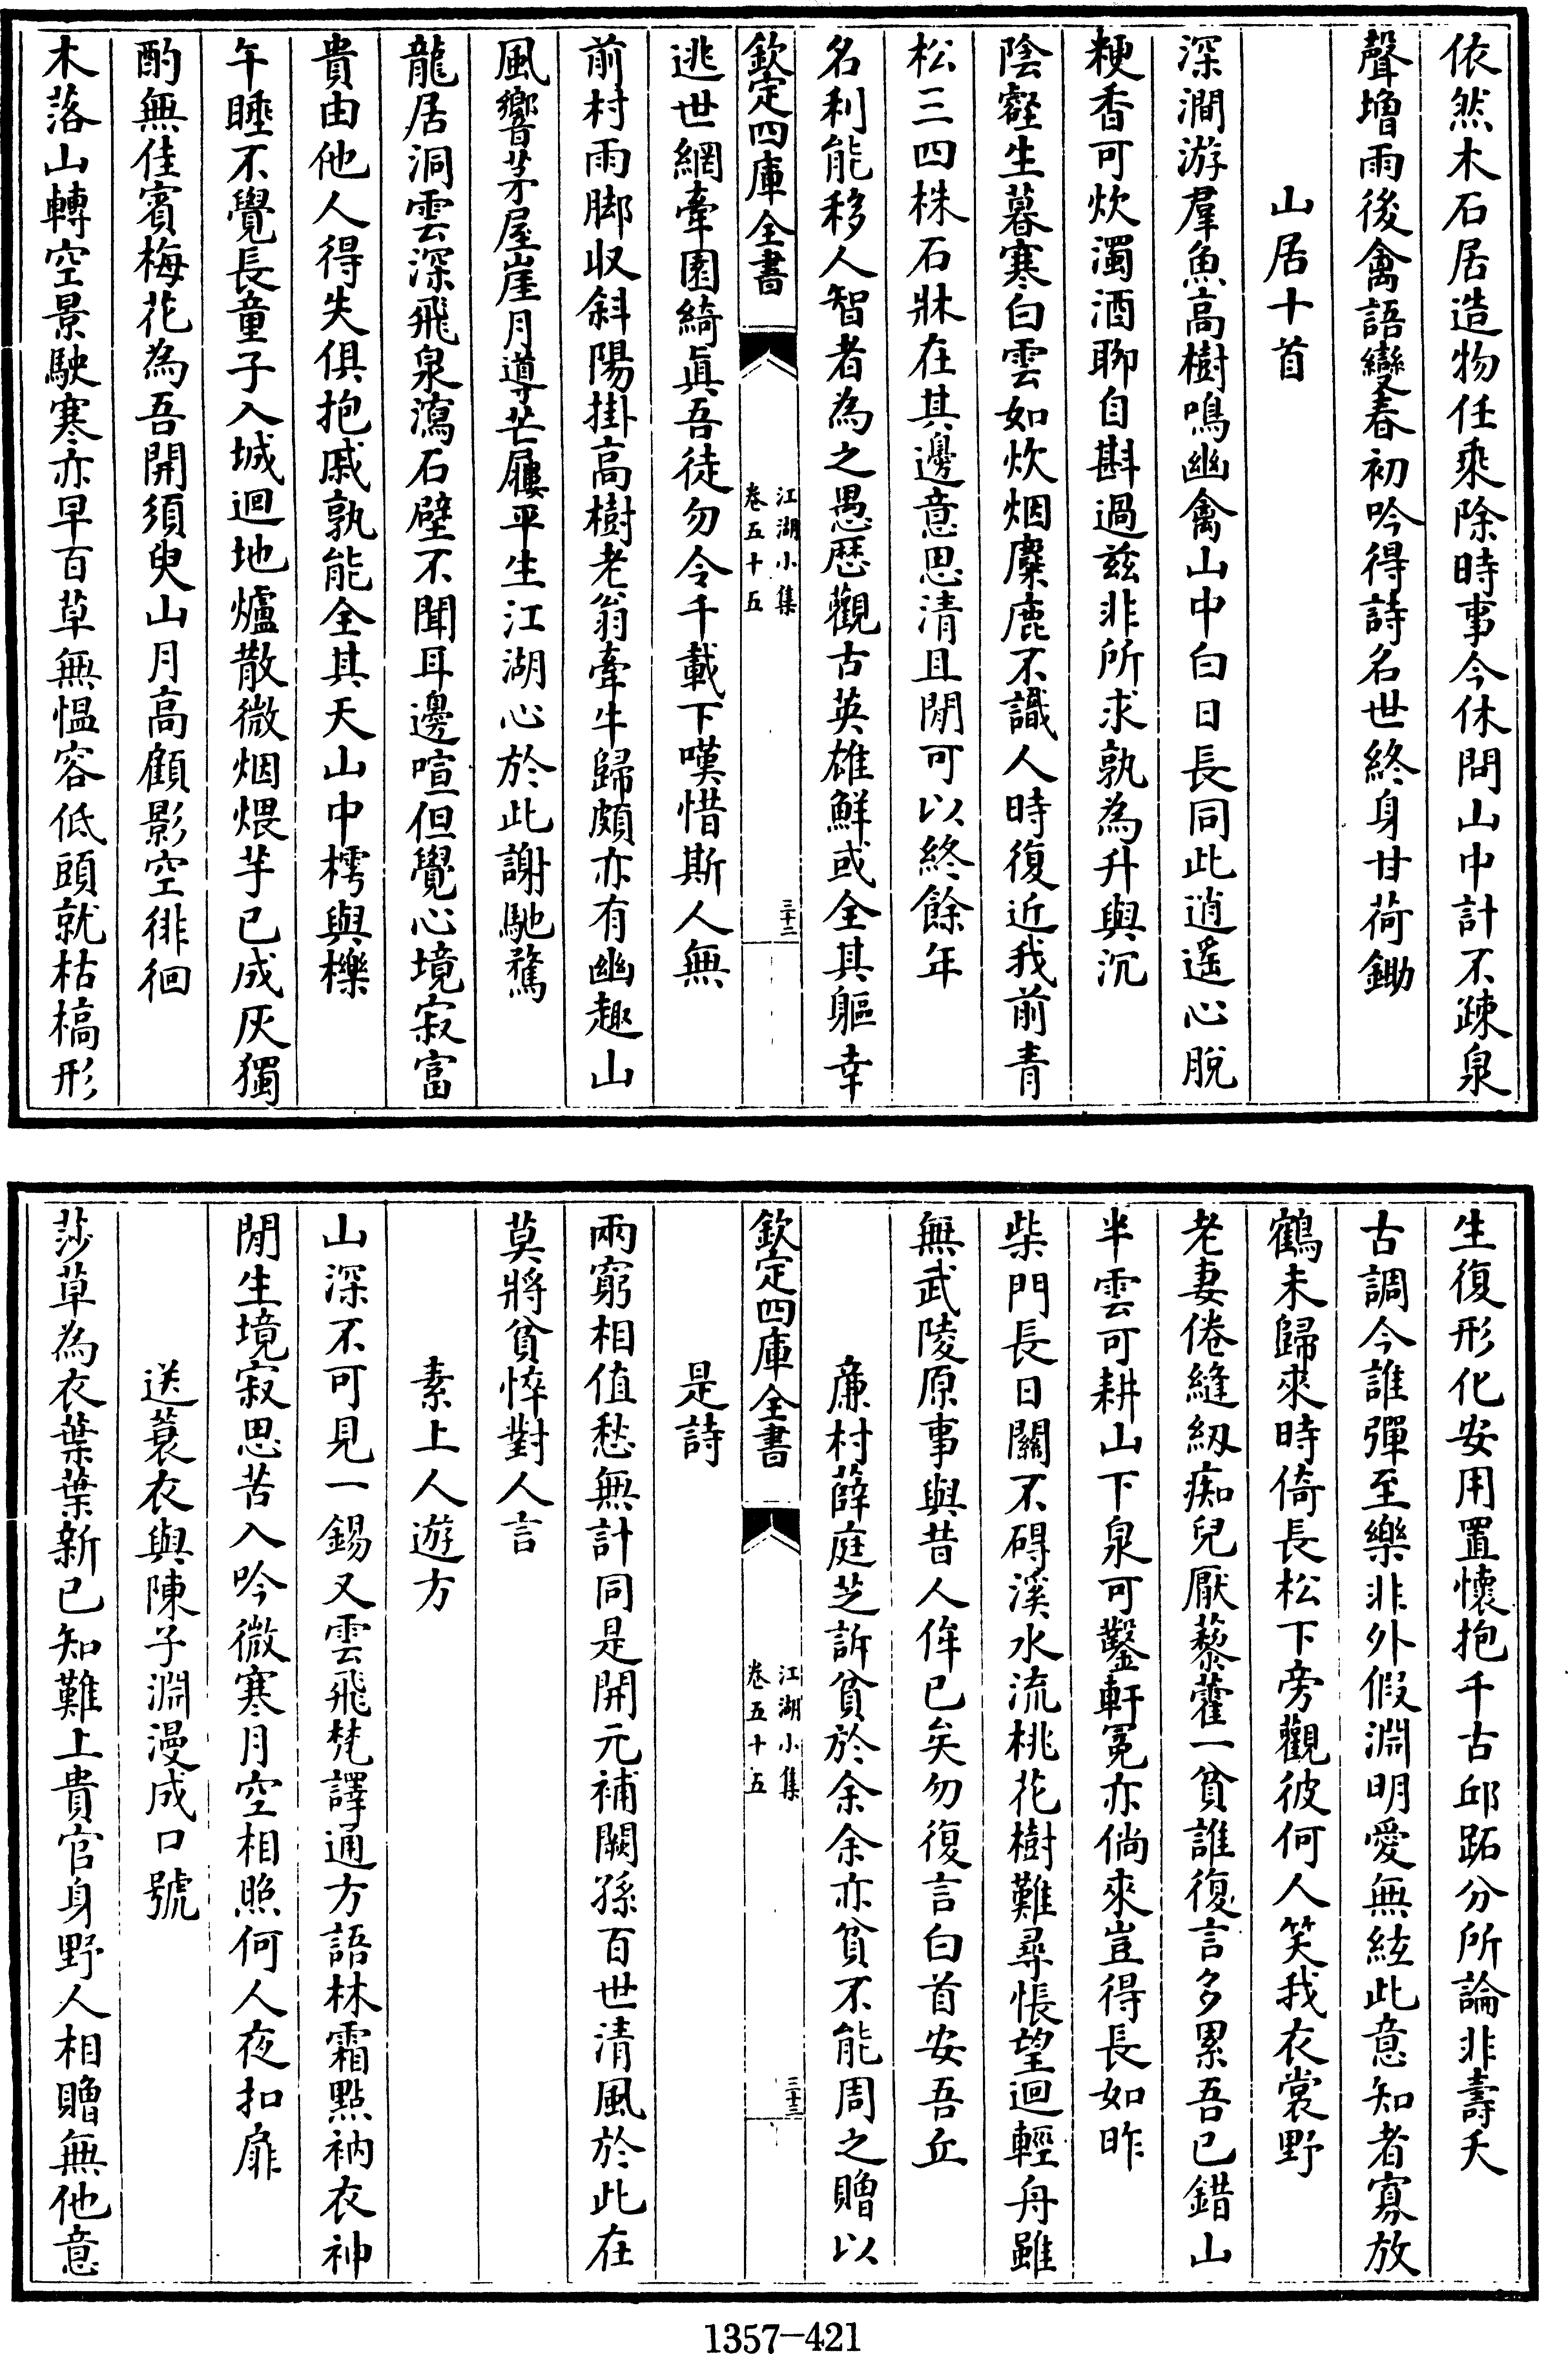 依然木石居造物任乘除時事今休問山中計不疎泉
聲增雨後禽語變春初吟得詩名世終身甘荷鋤
山居十首
深澗游羣魚高樹鳴幽禽山中白日長同此逍遙心脫
粳香可炊濁酒聊自斟過兹非所求孰為升與沉
陰壑生暮寒白雲如炊烟麋鹿不識人時復近我前青
松三四株石牀在其邊意思清且閒可以終餘年
名利能移人智者為之愚歴觀古英雄鮮或全其軀幸
欽定四庫全書
江湖小集
卷五十五
三十二
逃世網牽園綺眞吾徒勿令千載下嘆惜斯人無
前村雨脚收斜陽掛高樹老翁牽牛歸頗亦有幽趣山
風響茅屋崖月導芒屨平生江湖心於此謝馳騖
龍居洞雲深飛泉瀉石壁不聞耳邊喧但覺心境寂富
貴由他人得失俱抱戚孰能全其天山中樗與櫟
午睡不覺長童子入城迴地爐散微烟煨芋已成灰獨
酌無佳賓梅花為吾開須臾山月高顧影空徘徊
木落山轉空景駛寒亦早百草無愠容低頭就枯槁形
生復形化安用置懷抱千古邱跖分所論非壽夭
古調今誰彈至樂非外假淵明愛無絃此意知者寡放
鶴未歸來時倚長松下旁觀彼何人笑我衣裳野
老妻倦縫紉痴兒厭藜藿一貧誰復言多累吾已錯山
半雲可耕山下泉可鑿軒冕亦倘來豈得長如昨
柴門長日關不碍溪水流桃花樹難尋悵望迴輕舟雖
無武陵原事與昔人侔已矣勿復言白首安吾丘
廉村薛庭芝訴貧於余余亦貧不能周之贈以
欽定四庫全書
江湖小集
卷五十五
三十三
是詩
兩窮相值愁無計同是開元補闕孫百世清風於此在
莫將貧悴對人言
素上人遊方
山深不可見一錫又雲飛梵譯通方語林霜點衲衣神
閒生境寂思苦入吟微寒月空相照何人夜扣扉
送蓑衣與陳子淵漫成口號
莎草為衣葉葉新已知難上貴官身野人相贈無他意
1357—421